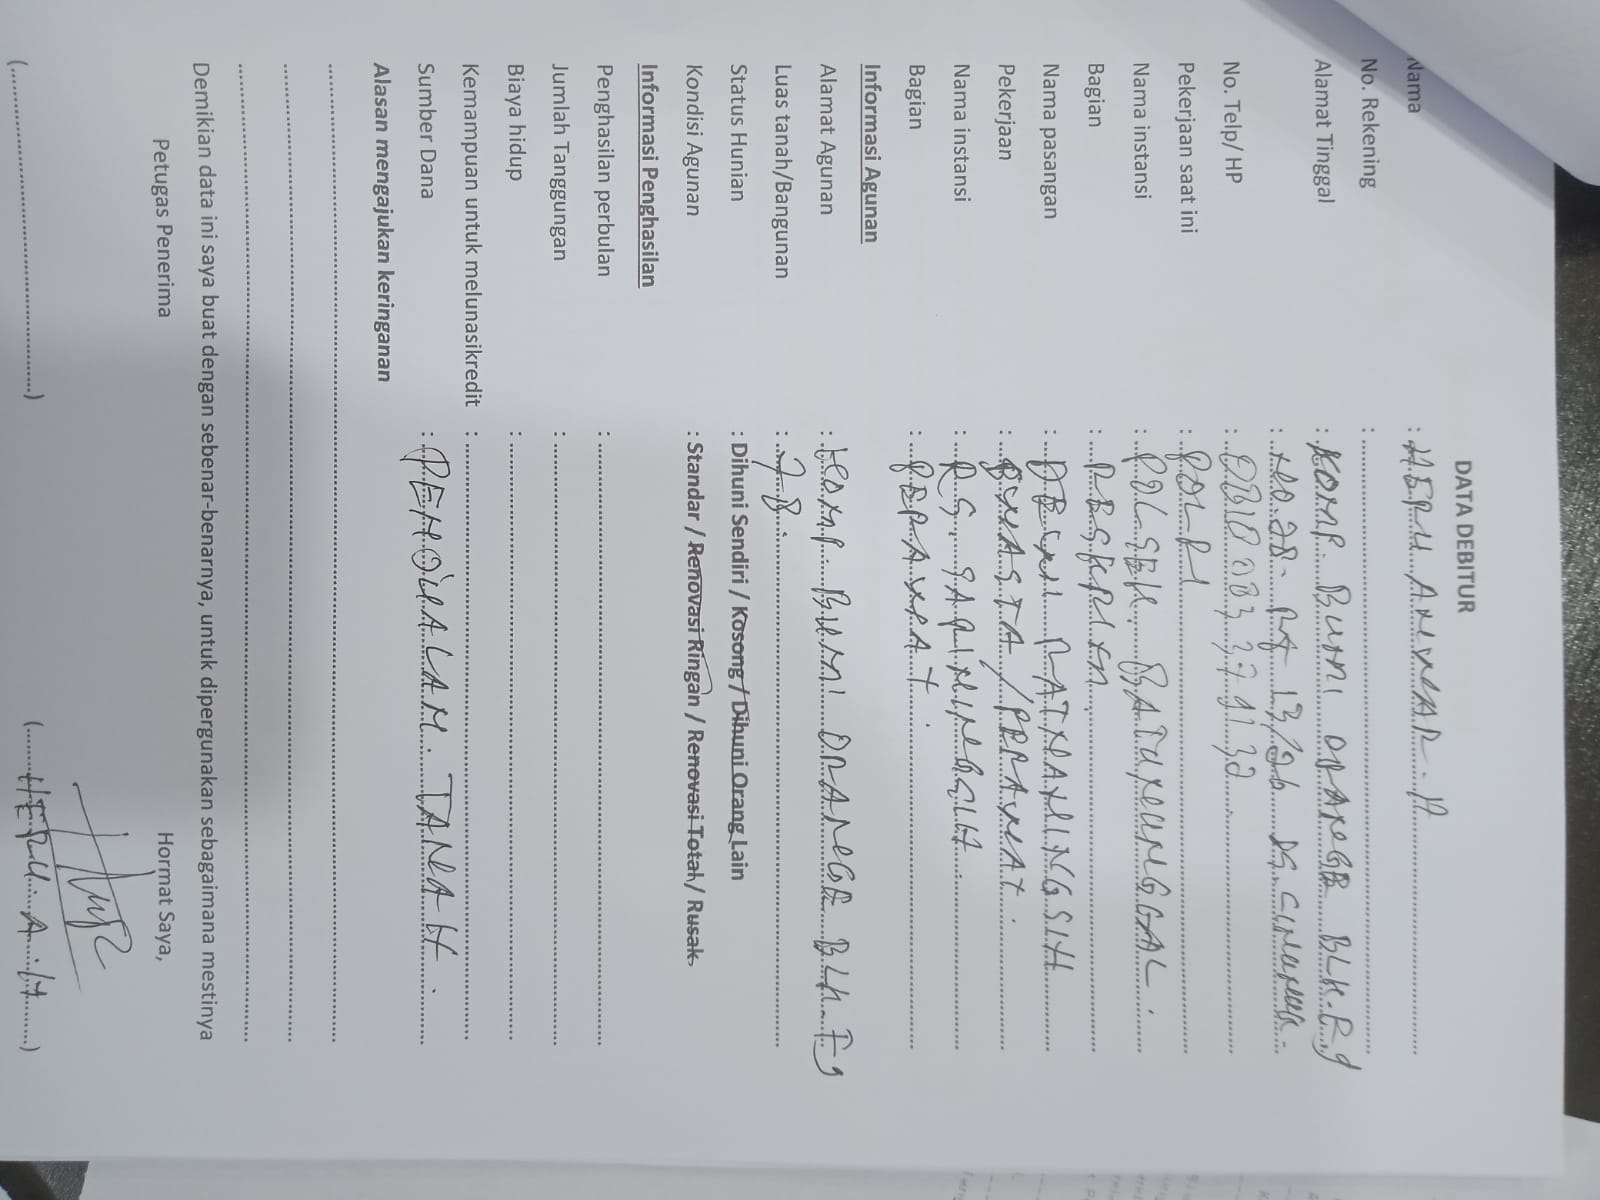 DATA DEBITUR
Nama : HERU ANWAR. H
No. Rekening :
Alamat Tinggal : KOMP. BUMI ORANGE BLK. E9
NO. 28. 13/26
No. Telp/ HP :
Pekerjaan saat ini : POLRI
Nama instansi : POLSEK.
Bagian : RESKRIM
Nama pasangan : RATNANINGSIH
Pekerjaan : SWASTA / PERAWAT.
Nama instansi : RS.
Bagian : PERAWAT.
Informasi Agunan
Alamat Agunan : KOMP. BUMI ORANGE BLK. E9
Luas tanah/Bangunan : 78.
Status Hunian : Dihuni Sendiri / Kosong / Dihuni Orang Lain
Kondisi Agunan : Standar / Renovasi Ringan / Renovasi Total / Rusak
Informasi Penghasilan
Penghasilan perbulan :
Jumlah Tanggungan :
Biaya hidup :
Kemampuan untuk melunasikredit :
Sumber Dana : TANAH.
Alasan mengajukan keringanan
Demikian data ini saya buat dengan sebenar-benarnya, untuk dipergunakan sebagaimana mestinya
Petugas Penerima Hormat Saya,
(..........) (HERU. A. H)